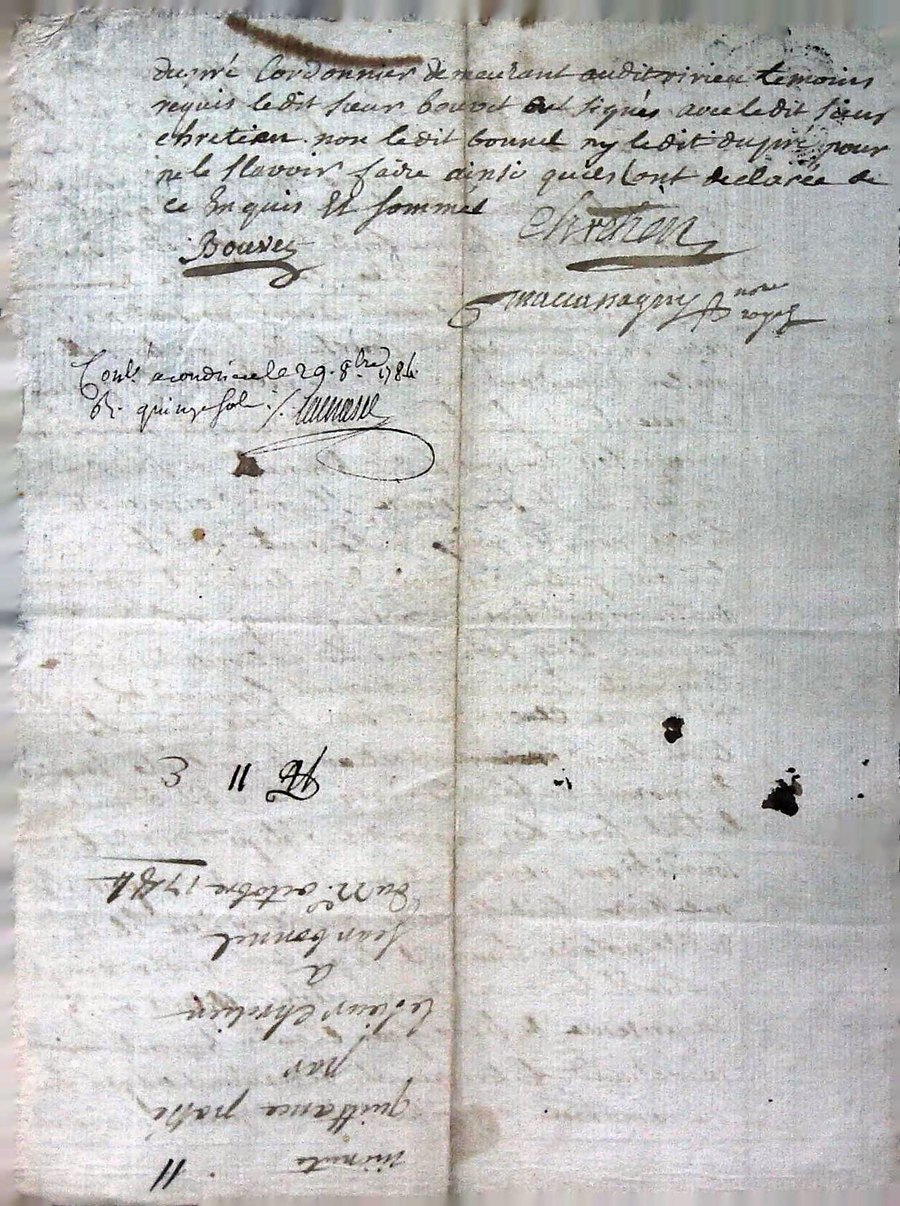 dupré Cordonnier demeurant audit virieu temoins
requis ledit sieur bouvet ont signés avec ledit sieur
chretien non ledit bonnel ny ledit dupré pour
ne le sçavoir faire ainsi quils ont declarée de
ce Enquis Et sommés
Bouvet
Chretien
nore
royal
Conlé a condrieu le 29. 8bre 1784.
quinze sols
11
minute
quittance passé
par
le sieur Chretien
a
jean bonnel
Du 22e octobre 1784
11